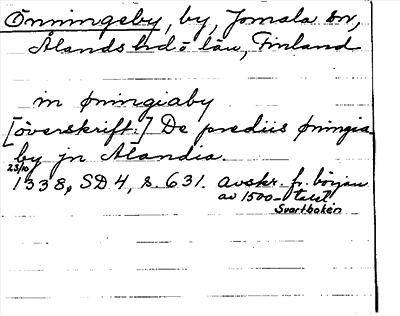 Önningeby, by, Jomala sn,
Ålands hd o län, Finland
in øningiaby
[överskrift:] De prediis øningia-
by jn Alandia.
23/10
1338, SD 4, s. 631. avskr. fr. början
av 1500-talet
Svartboken